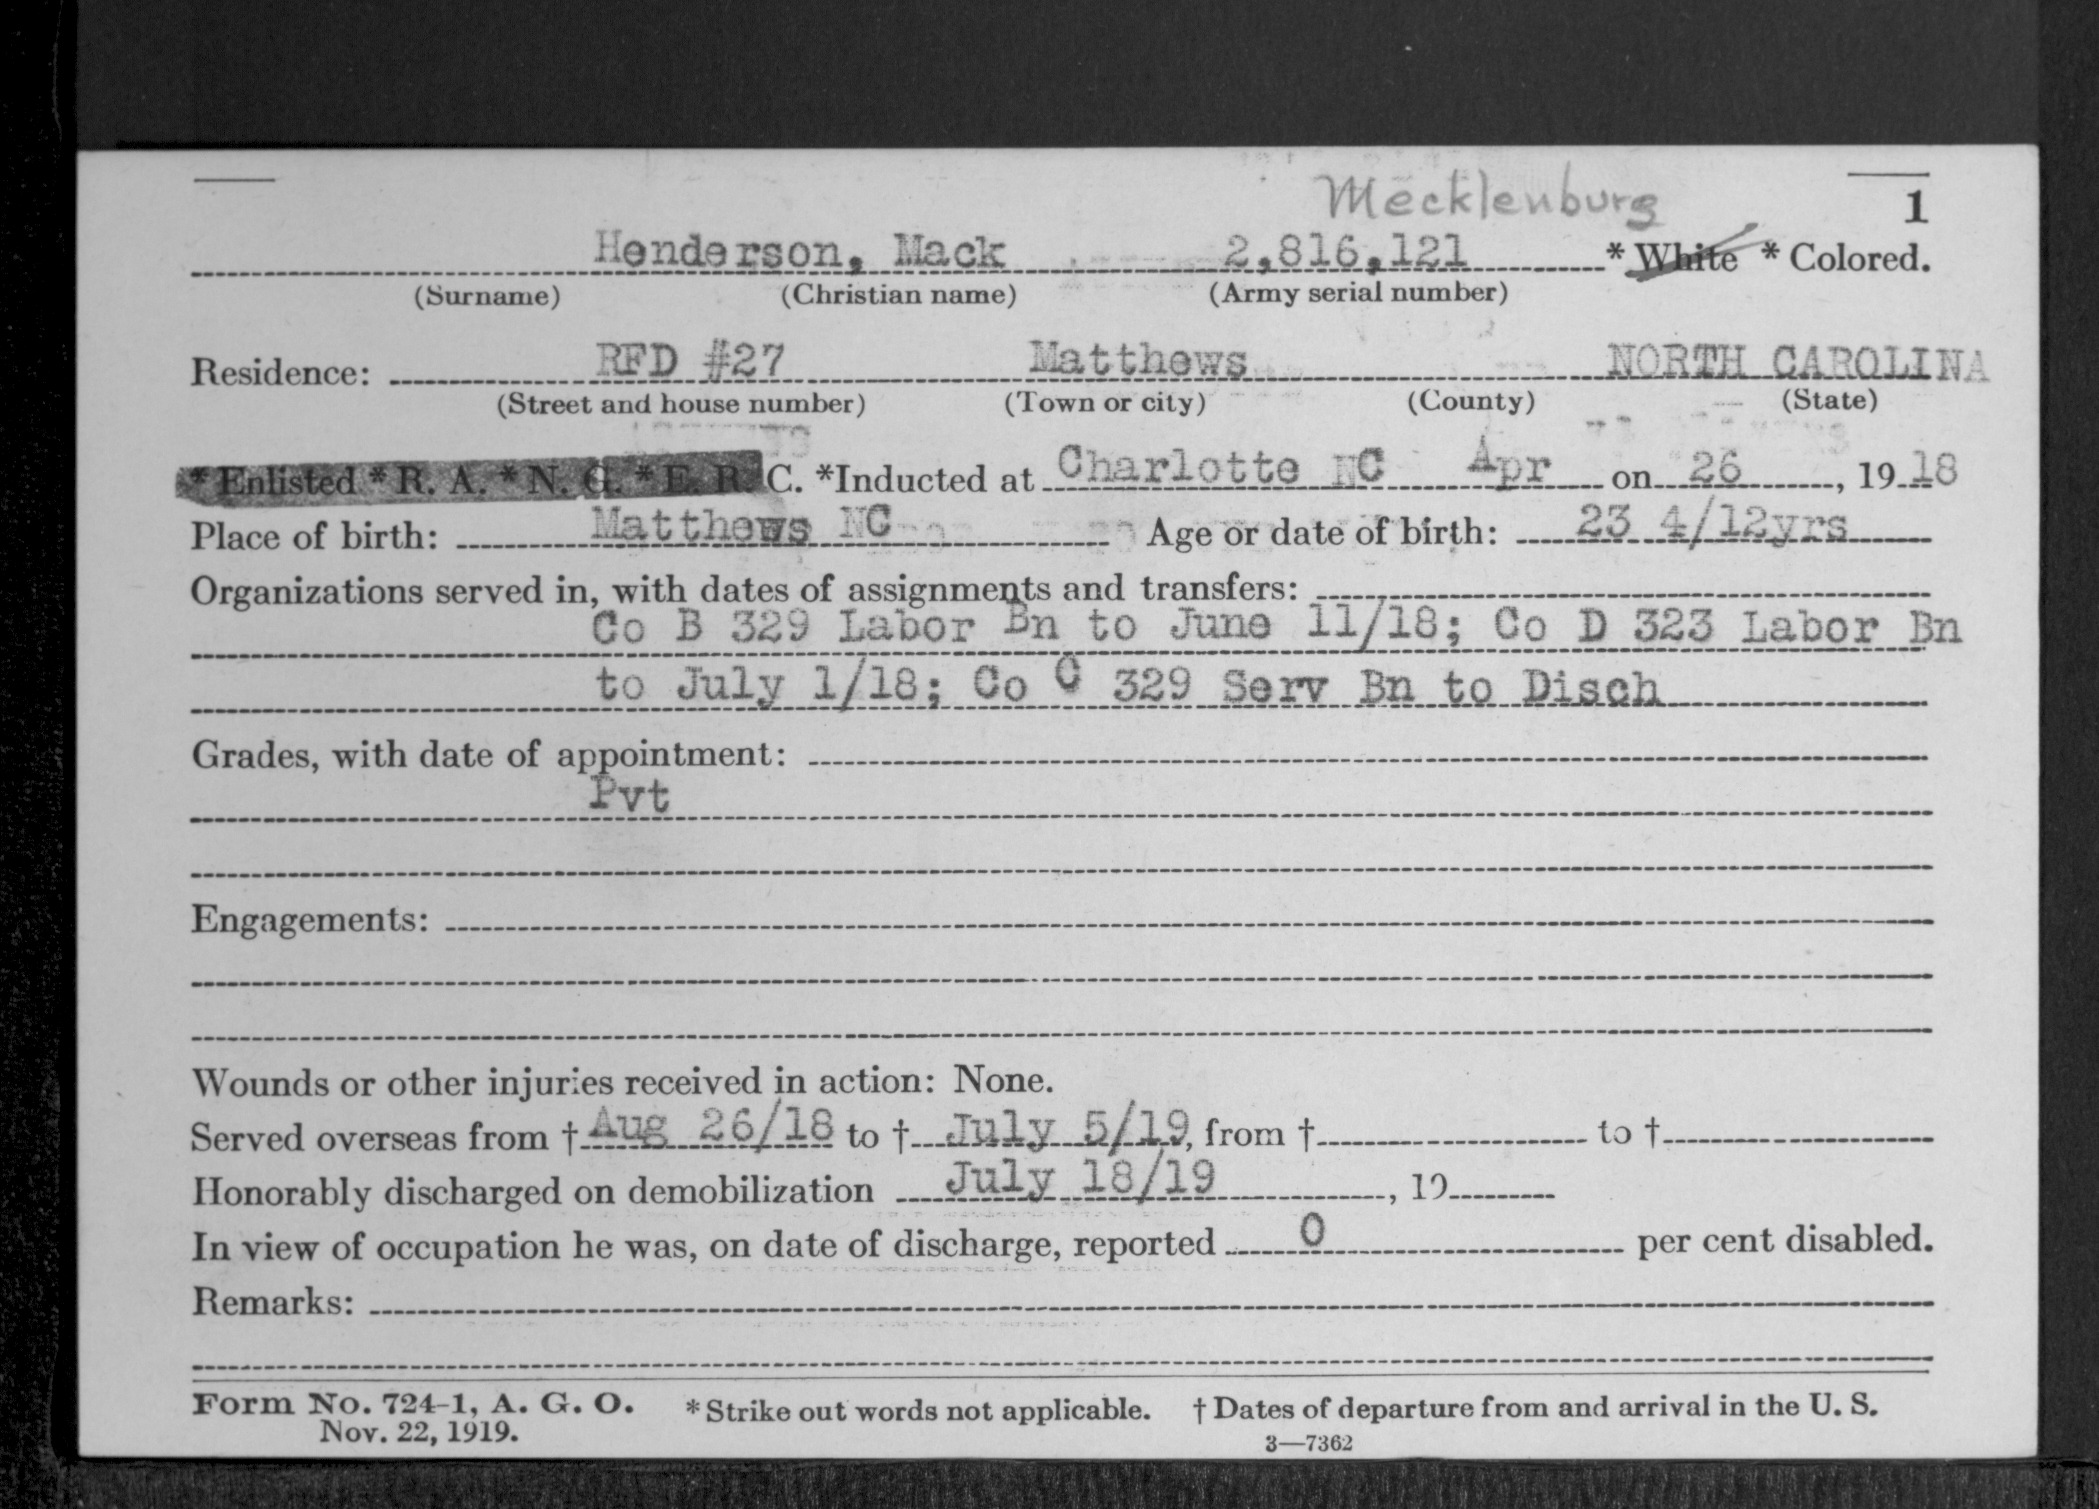 Mecklenburg
1
Henderson, Mack 2,816,121 * White * Colored.
(Surname) (Christian name) (Army serial number)
Residence: RFD #27 Matthews NORTH CAROLINA
(Street and house number) (Town or city) (County) (State)
* Enlisted * R. A. * N. G. * E. R. C. *Inducted at Charlotte NC Apr on 26, 1918
Place of birth: Matthews NC Age or date of birth: 23 4/12yrs
Organizations served in, with dates of assignments and transfers:
Co B 329 Labor Bn to June 11/18; Co D 323 Labor Bn
to July 1/18; Co C 329 Serv Bn to Disch
Grades, with date of appointment:
Pvt
Engagements:
Wounds or other injuries received in action: None.
Served overseas from † Aug 26/18 to † July 5/19, from † to †
Honorably discharged on demobilization July 18/19, 19
In view of occupation he was, on date of discharge, reported 0 per cent disabled.
Remarks:
Form No. 724-1, A. G. O. * Strike out words not applicable. † Dates of departure from and arrival in the U. S.
Nov. 22, 1919. 3—7362